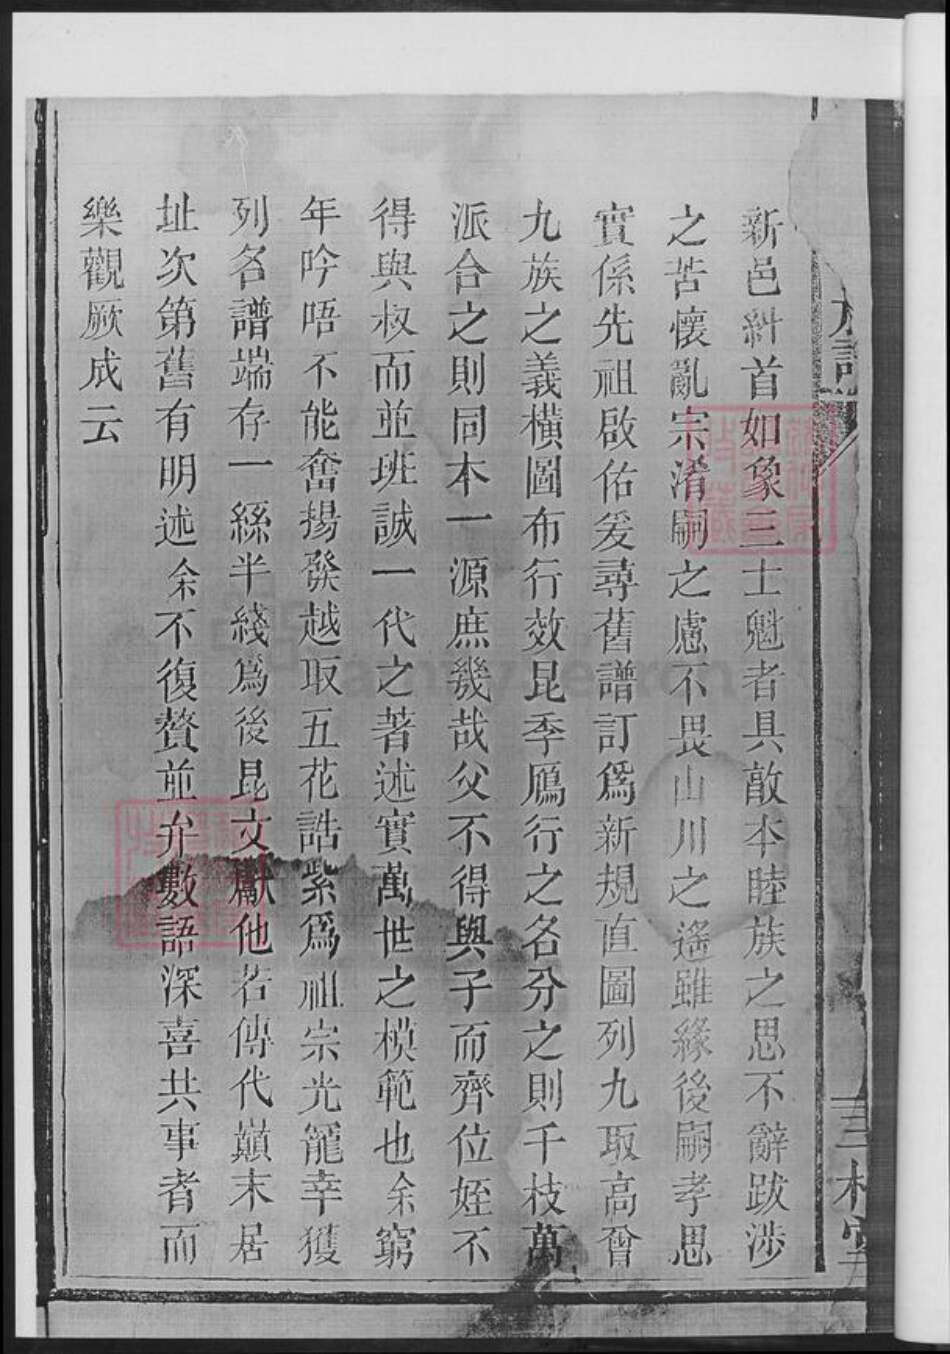 新邑糾首如象三士魁者具敵本睦族之思不辭跋涉
之苦懷亂宗淆嗣之慮不畏山川之遙雖緣後嗣孝思
實係先祖啟佑爰尋舊譜訂爲新規直圖列九取高曾
九族之義橫圖布行效昆季鴈行之各分之則千枝萬
派合之則同本一源庶幾哉父不得與子而齊位姪不
得與叔而並班誠一代之著述實萬世之模範也余窮
年吟唔不能奮揚發越取五花誥紫爲祖宗光寵幸獲
列各譜端存一絲半綫爲後昆文獻他若傳代巔末居
址次第舊有明述余不復贅並弁數語深喜共事者而
樂觀厥成云